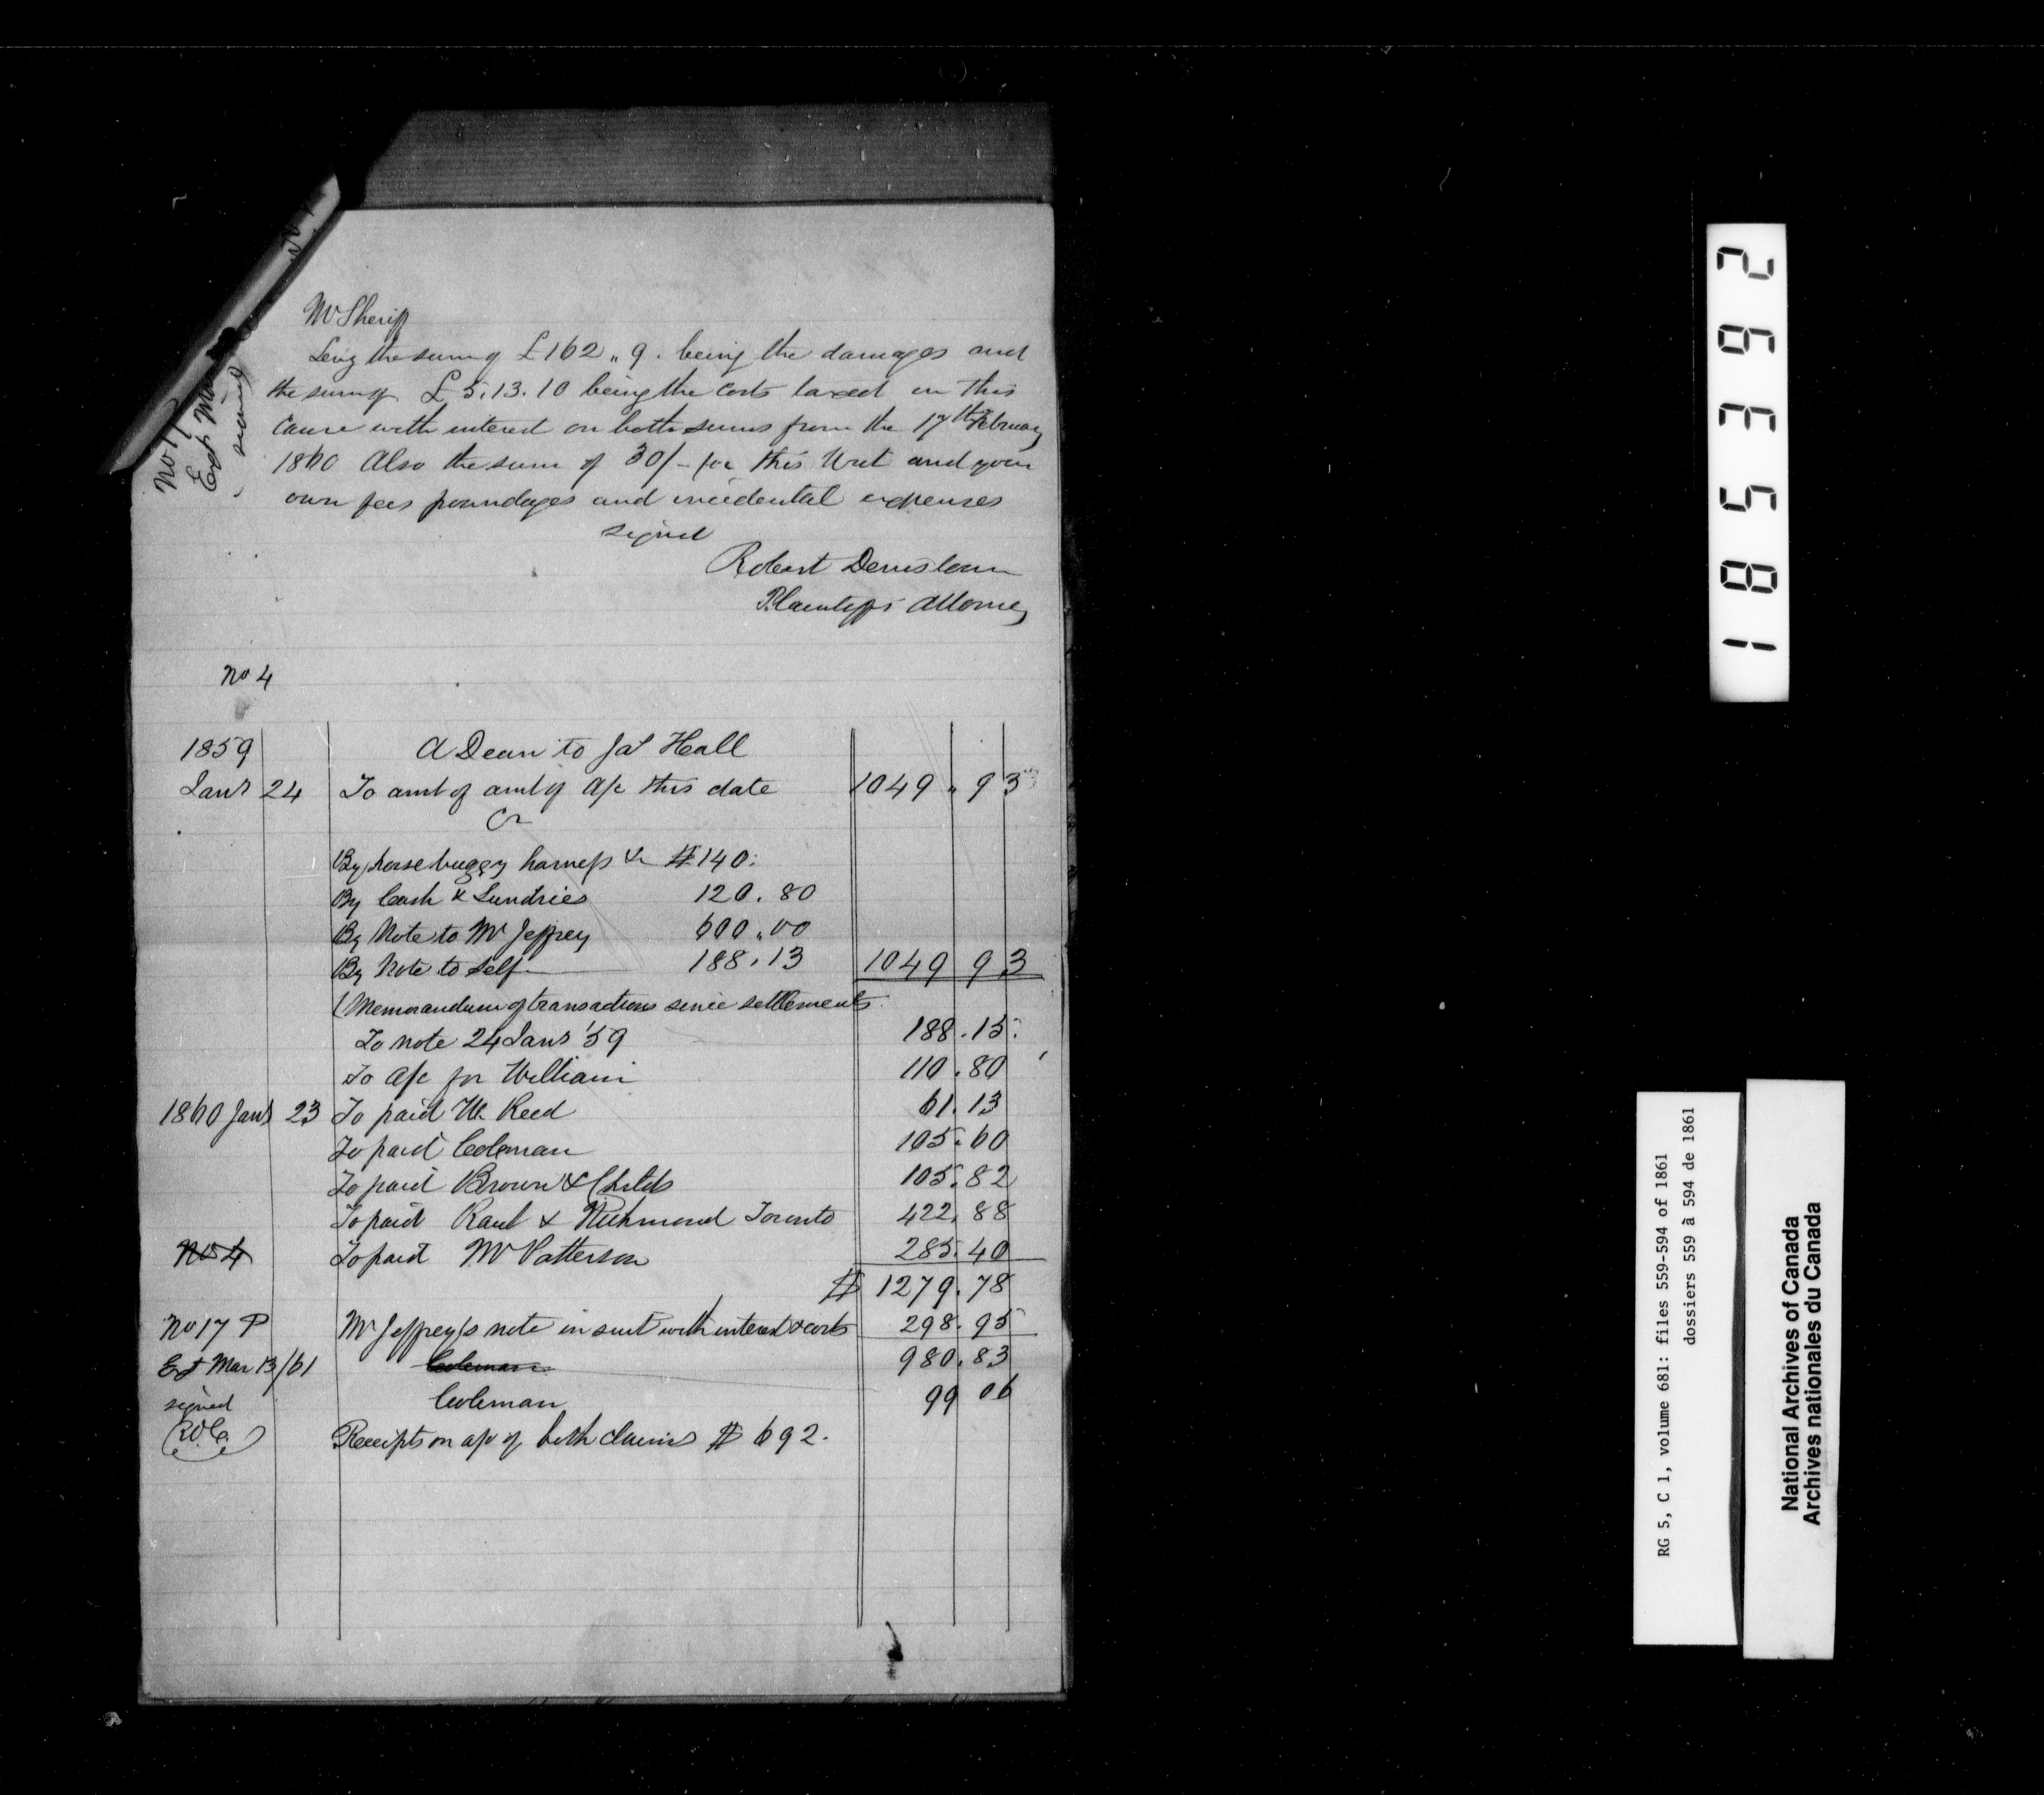 Mr Sheriff
Levy the sum of £162 „ 9 . being the damages and
the sum of £5.13.10 being the costs taxed in this
cause with interest on both sums from the 17th February
1860 Also the sum of 30/- for this Writ and your
own fees poundages and incidental expenses
signed
Robert Dennistoun
Plaintiffs Attorney
No 17
Ext Mar
signed
No 4
1859 A Dean to Jas Hall
Jany 24 To amt of amt of a/c this date 1049 „ 93
Cr
By horse buggy harness &c $140.
By Cash & Sundries 120.80
By Note to Mr Jeffrey 600„00
By Note to self 188.13 1049 93
(Memorandum of transactions since settlements
To note 24 Jany '59 188.15
To a/c for William 110.80
1860 Jany 23 To paid W. Reed 61.13
To paid Coleman 105.60
To paid Brown & Childs 105.82
To paid & Richmond Toronto 422.88
No 4 To paid Mr Patterson 285.40
$ 1279.78
No 17 P Mr Jeffrey's note in suit with interest & costs 298.95
Ex Mar 13/61 Coleman 980.83
signed Coleman 99 06
Receipts on a/c of both claims $ 692.
2
6
3
5
8
1
RG 5, C 1, volume 681: files 559-594 of 1861
dossiers 559 à 594 de 1861
National Archives of Canada
Archives nationales du Canada